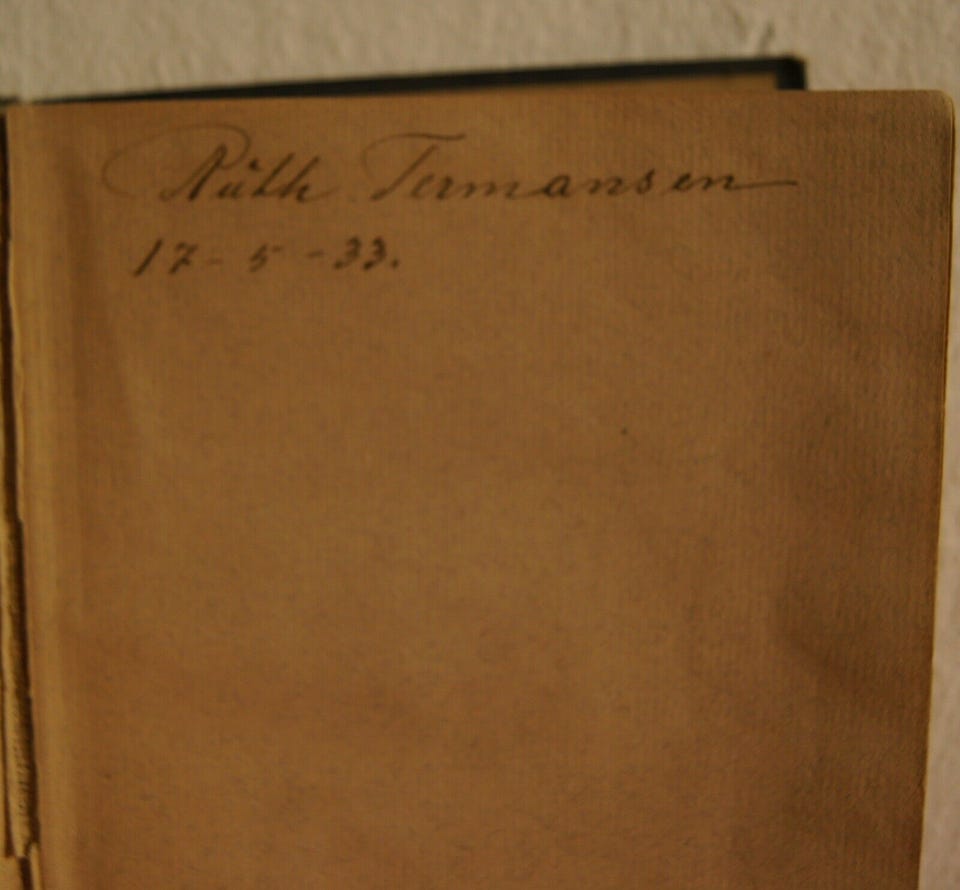 Ruth Termansen
17-5-33.